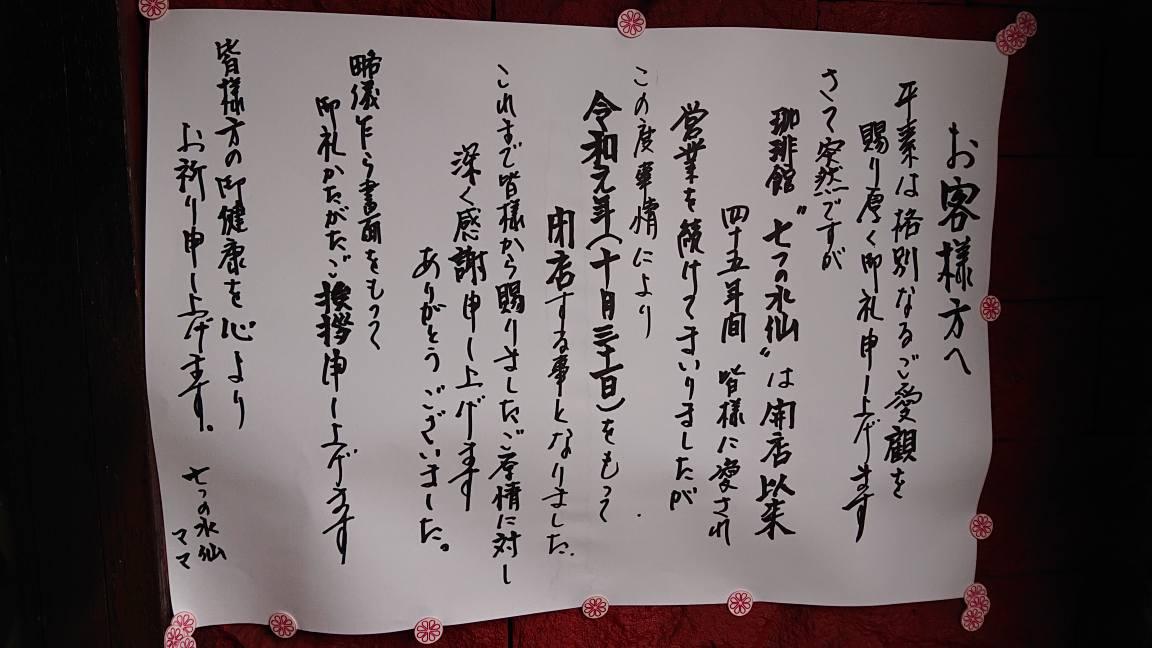 お客様方へ
平素は格別なるご愛顧を
賜り厚く御礼申し上げます
さて突然ですが
珈琲館〝七つの水仙〟は開店以来
四十五年間 皆様に愛され
営業を続けてまいりましたが
この度事情により
令和元年(十月三十一日)をもって
閉店する事となりました.
これまで皆様から賜りましたご厚情に対し
深く感謝申し上げます
ありがとうございました。
略儀乍ら書面をもって
御礼かたがたご挨拶申し上げます
皆様方の御健康を心より
お祈り申し上げます。
七つの水仙
ママ